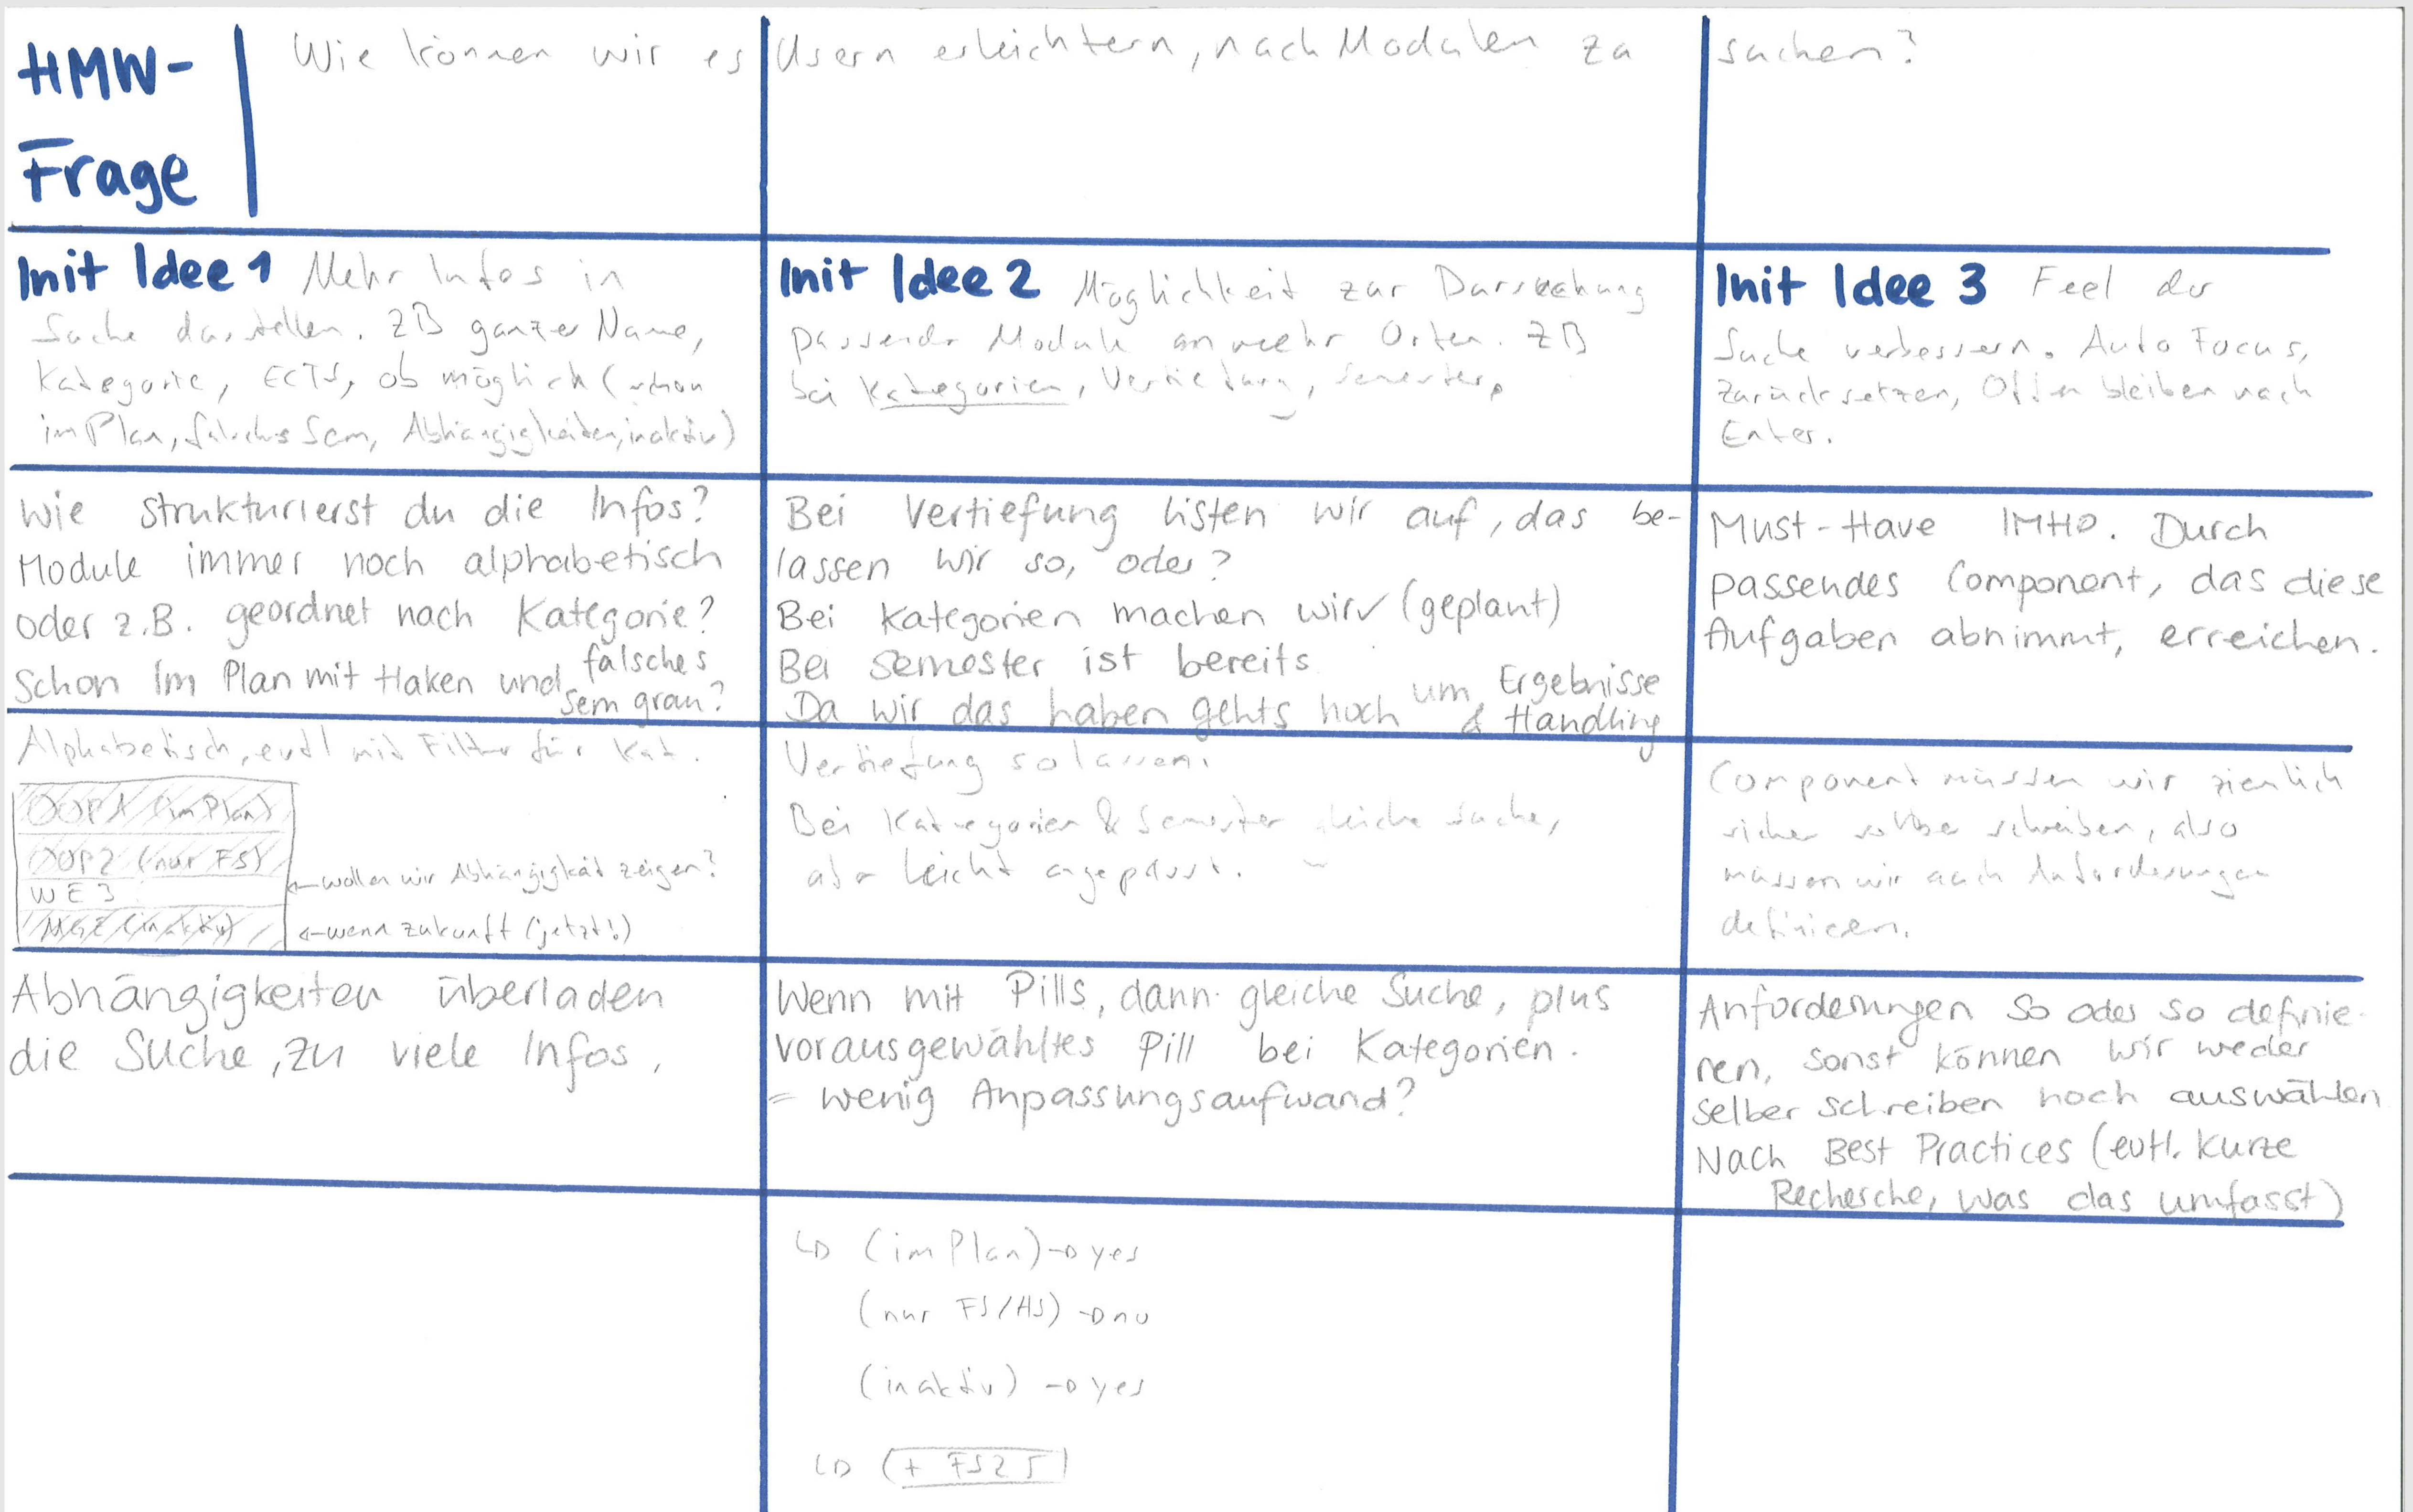 HMW-
Frage
Wie können wir es Usern erleichtern, nach Modulen zu suchen?
Init Idee 1 Mehr Infos in
Suche darstellen. ZB ganzer Name,
Kategorie, ECTS, ob möglich (schon
im Plan, falsches Sem, Abhängigkeiten, inaktiv)
Init Idee 2 Möglichkeit zur Darsuchung
passender Module an mehr Orten. ZB
bei Kategorien, Vertiefung, Semester,
Init Idee 3 Feel der
Suche verbessern. Auto Focus,
zurücksetzen, Offen bleiben nach
Enter.
Wie strukturierst du die Infos?
Module immer noch alphabetisch
oder z.B. geordnet nach Kategorie?
Schon im Plan mit Haken und falsches
Sem grau?
Bei Vertiefung listen wir auf, das be-
lassen wir so, oder?
Bei Kategorien machen wir ✓ (geplant)
Bei Semester ist bereits
Da wir das haben gehts noch um Ergebnisse
& Handling
Must-Have IMHO. Durch
passendes Component, das diese
Aufgaben abnimmt, erreichen.
Alphabetisch, evtl mit Filter für Kat.
OOP1 (im Plan)
OOP2 (nur FS)
WE3
MGE (inaktiv)
←wollen wir Abhängigkeit zeigen?
←wenn Zukunft (jetzt!)
Vertiefung so lassen.
Bei Kategorien & Semester gleiche Suche,
aber leicht angepasst.
Component müssen wir ziemlich
sicher selber schreiben, also
müssen wir auch Anforderungen
definieren.
Abhängigkeiten überladen
die Suche, zu viele Infos.
Wenn mit Pills, dann gleiche Suche, plus
vorausgewähltes Pill bei Kategorien.
= wenig Anpassungsaufwand?
Anforderungen so oder so definie-
ren, sonst können wir weder
selber schreiben noch auswählen
Nach Best Practices (evtl. kurze
Recherche, was das umfasst)
↳ (im Plan) → yes
(nur FS/HS) → no
(inaktiv) → yes
↳ (+ FS25)